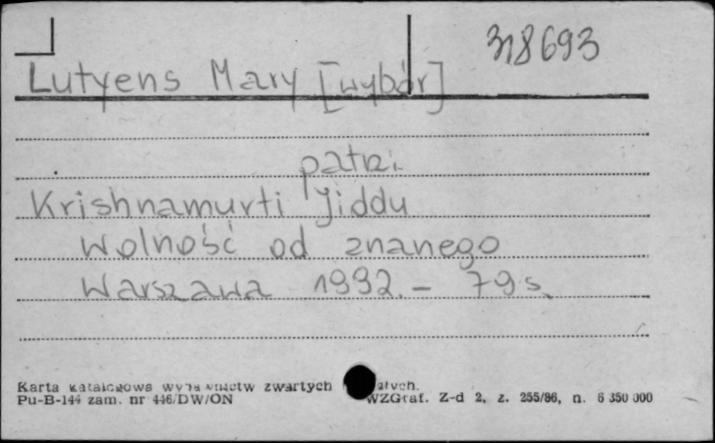 318693
Lutyens Mary [wybór]
patrz.
Krishnamurti Jiddu
Wolność od znanego
Warszawa 1992. - 79 s.
Karta katalogowa wydawnictw zwartych
Pu-B-144 zam. nr 446/DW/ON WZGraf. Z-d 2, z. 255/86, n. 6 350 000